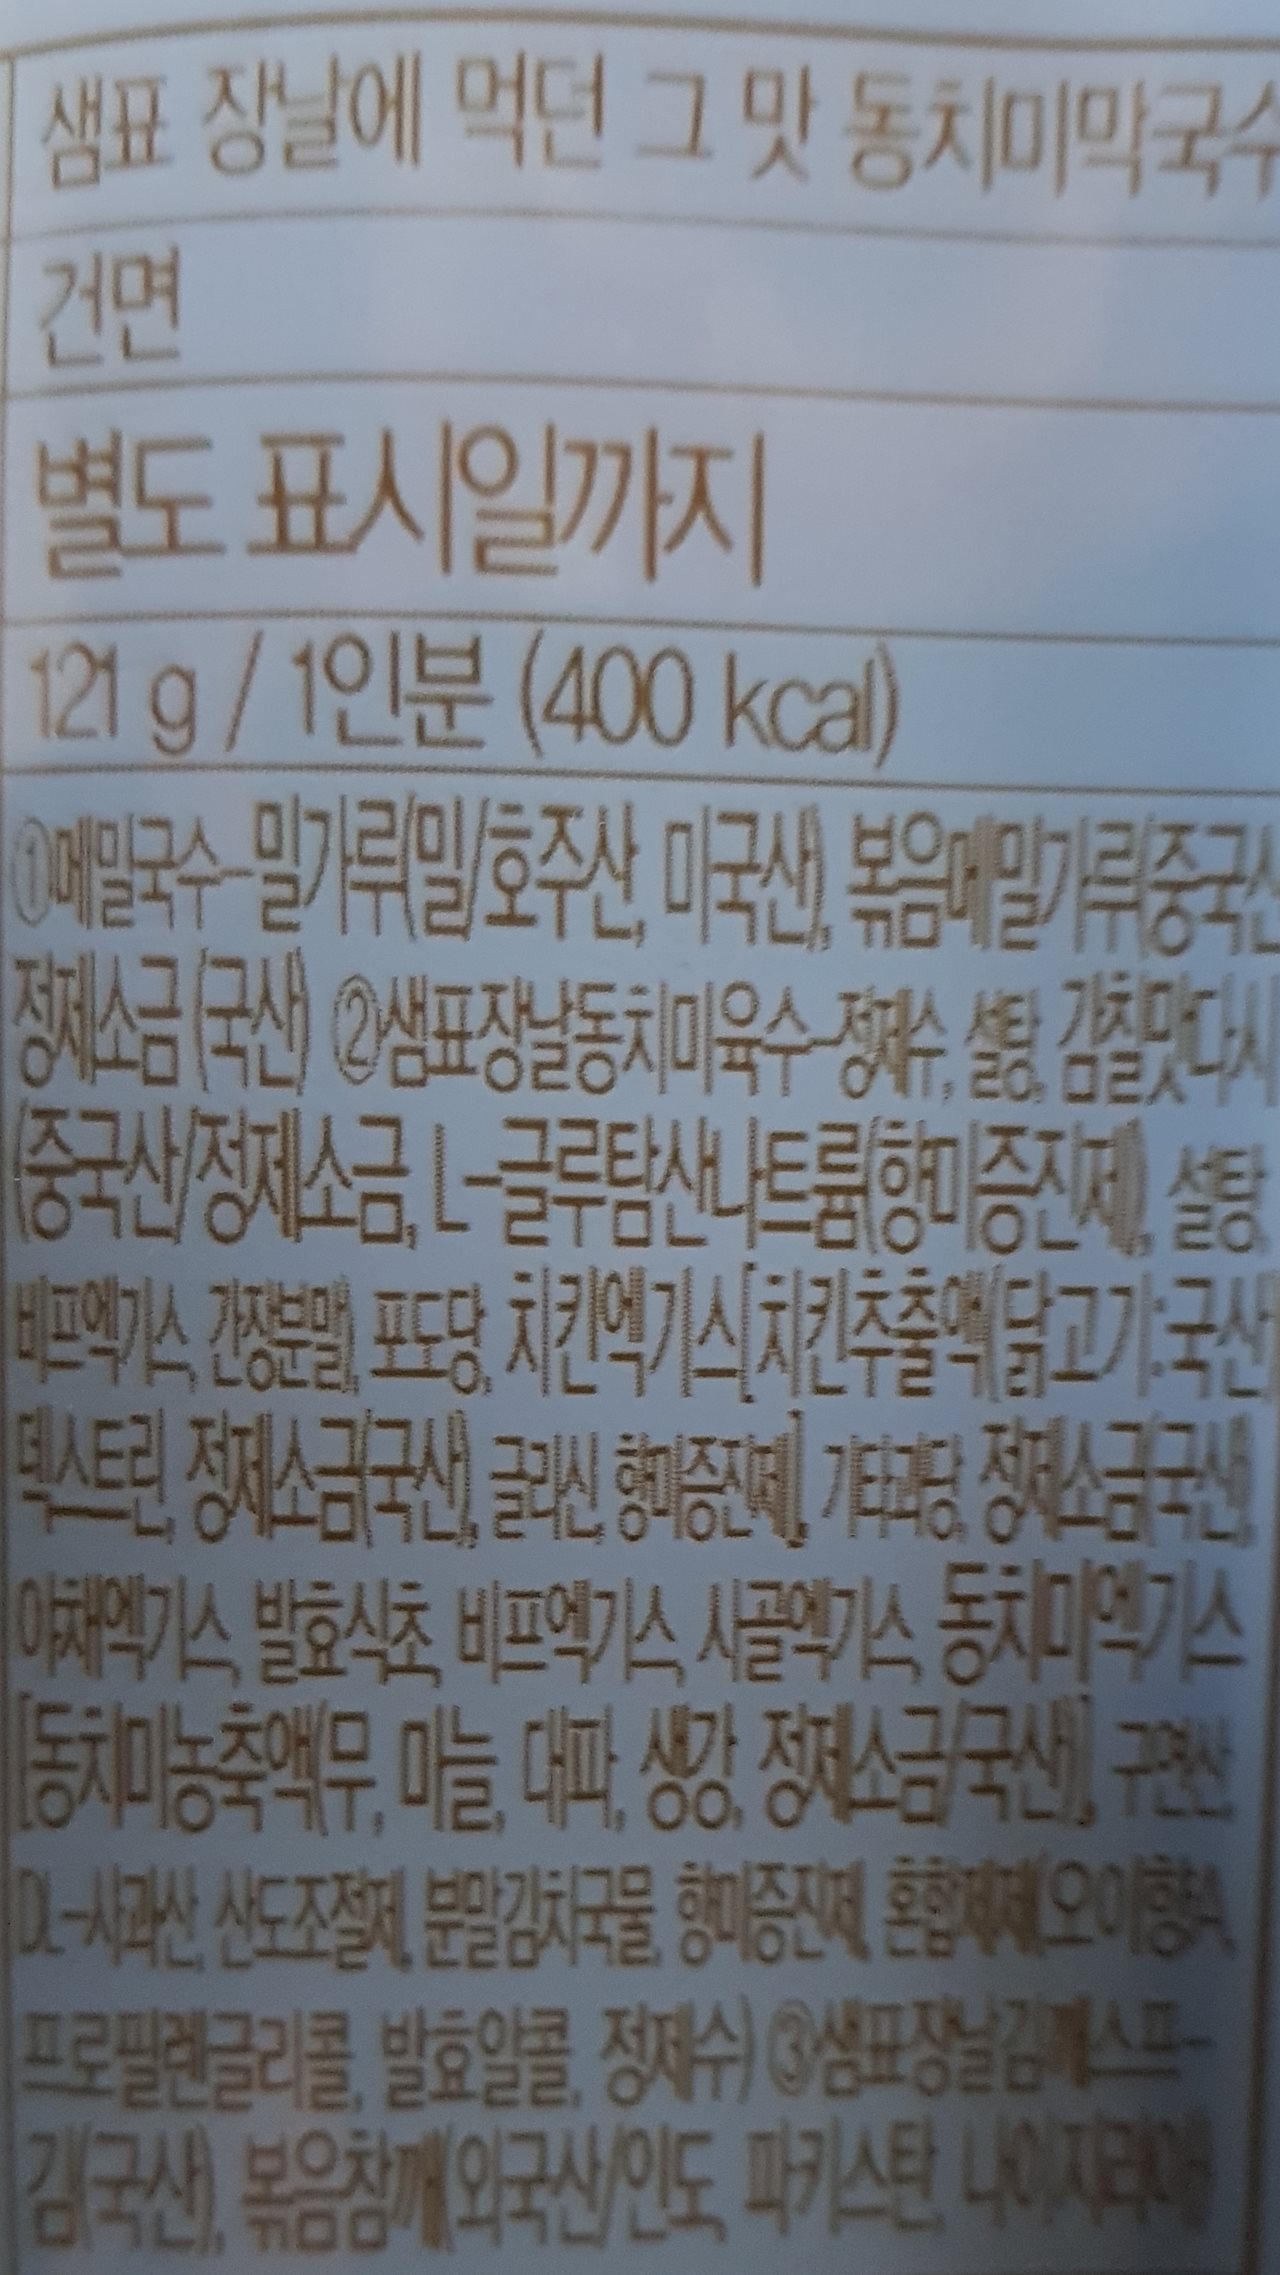 샘표 장날에 먹던 그 맛 동치미막국수
건면
별도 표시일까지
121 g / 1인분 (400 kcal)
①메밀국수-밀가루(밀/호주산, 미국산), 볶음메밀가루(중국산
정제소금(국산) ②샘표장날동치미육수-정제수, 설탕, 감칠맛다시
(중국산/정제소금, L-글루탐산나트륨(향미증진제), 설탕,
비프엑기스, 간장분말), 포도당, 치킨엑기스[치킨추출액(닭고기:국산)
덱스트린, 정제소금(국산), 글리신, 향미증진제], 기타과당, 정제소금(국산),
야채엑기스, 발효식초, 비프엑기스, 사골엑기스, 동치미엑기스
[동치미농축액(무, 마늘, 대파, 생강, 정제소금/국산)], 구연산,
DL-사과산, 산도조절제, 분말김치국물, 향미증진제, 혼합제제(오이향료,
프로필렌글리콜, 발효알콜, 정제수) ③샘표장날김깨스프-
김(국산), 볶음참깨(외국산/인도, 파키스탄, 나이지리아